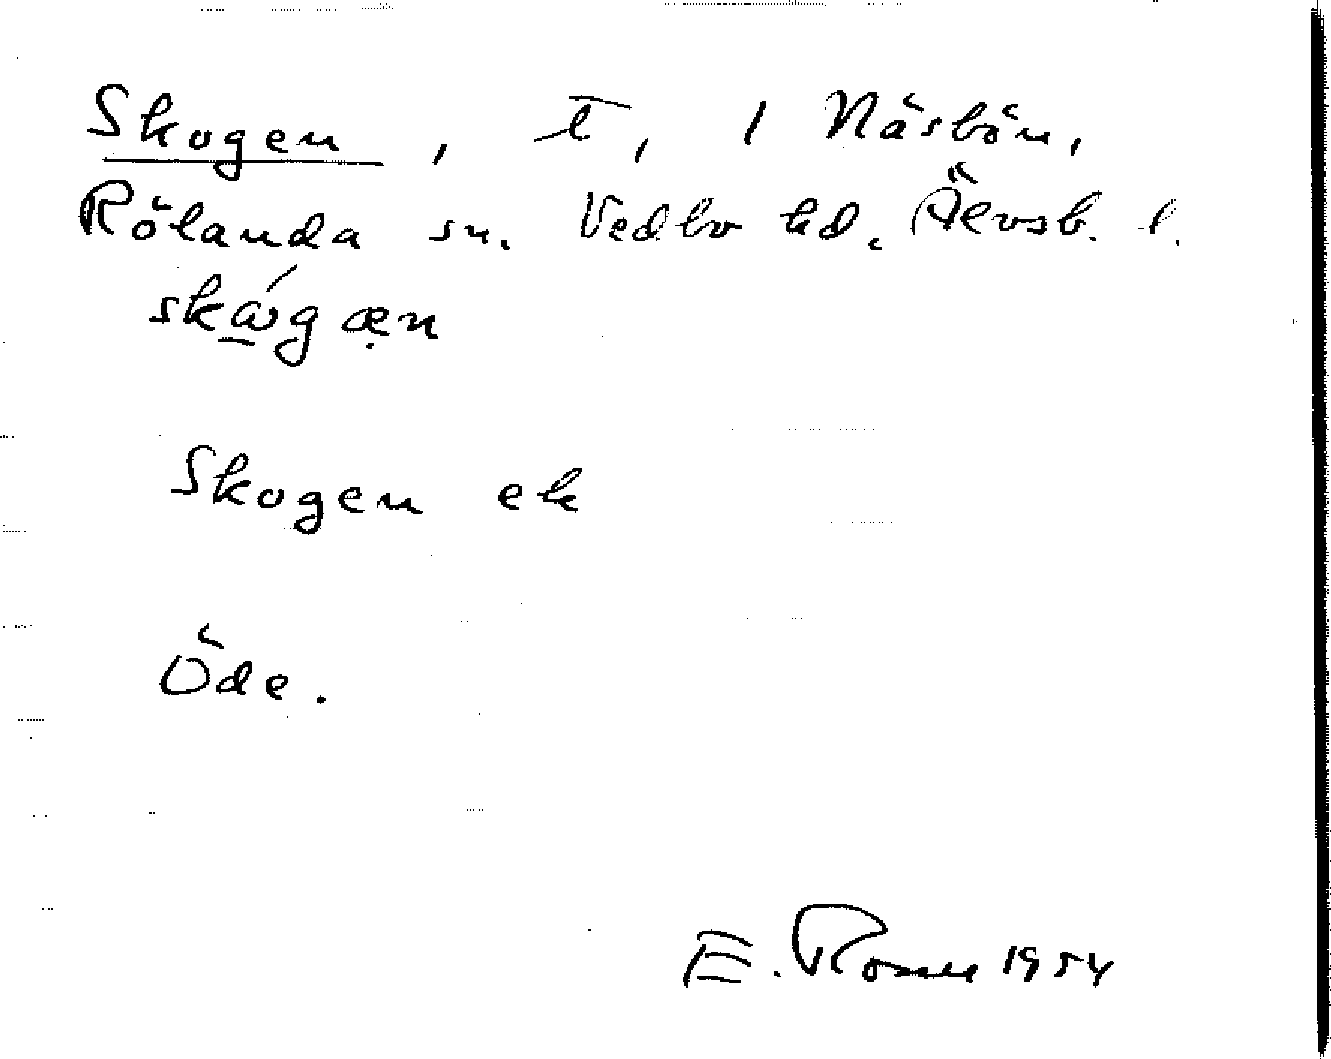 Skogen, t, 1 Näsbön,
Rölanda sn. Vedbo hd. Älvsb. l.
skågæn
Skogen ek
Öde.
E. 1954